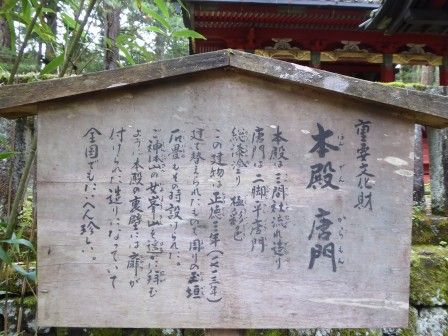 重要文化財
本殿 唐門
ほんでん からもん
本殿は三間社流れ造り
唐門は二脚平唐門
総漆塗り 極彩色
この建物は正徳三年(一七一三年)
建て替えられたもので周りの玉垣
石畳もその時設けられた。
ご神体山の女峯山を遙かに拝む
よう、本殿の裏壁には扉が
付けられた造りになっていて
全国でもたいへん珍しい。